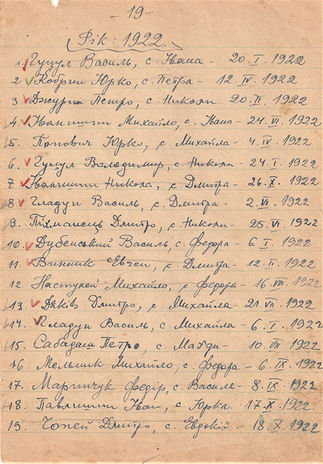 - 19 -
Рік: 1922.
1. Гуцул Василь, с. Івана - 20. I. 1922
2. Кобрин Юрко, с. Петра - 12. IV. 1922
3. Джурак Петро, с. Николи 20. II. 1922
4. Іванишин Михайло, с. Івана - 24. VI. 1922
5. Попович Юрко, с. Михайла - 4. IV. 1922
6. Гуцул Володимир, с. Николи - 24. I. 1922
7. Іванишин Никола, с. Дмитра - 26. X. 1922
8. Гладун Василь, с. Дмитра - 2. VII. 1922
9. Дмитро, с. Николи - 25. VI. 1922
10. Дубенський Василь, с. Федора - 6. I. 1922
11. Винник Евген, с. Дмитра - 12. II. 1922
12. Михайло, с. Федора - 16. 1922
13. Яків Дмитро, с. Михайла - 21. 1922
14. Гладун Василь, с. Михайла - 6. I. 1922
15. Сабадаш Петро, с. - 10. 1922
16. Мельник Михайло, с. Федора - 6. IX. 1922
17. Мартинчук Федір, с. Василя - 8. IX. 1922
18. Іван, с. Юрка - 17. X. 1922
19. Дмитро, с. Евдокії - 18. X. 1922